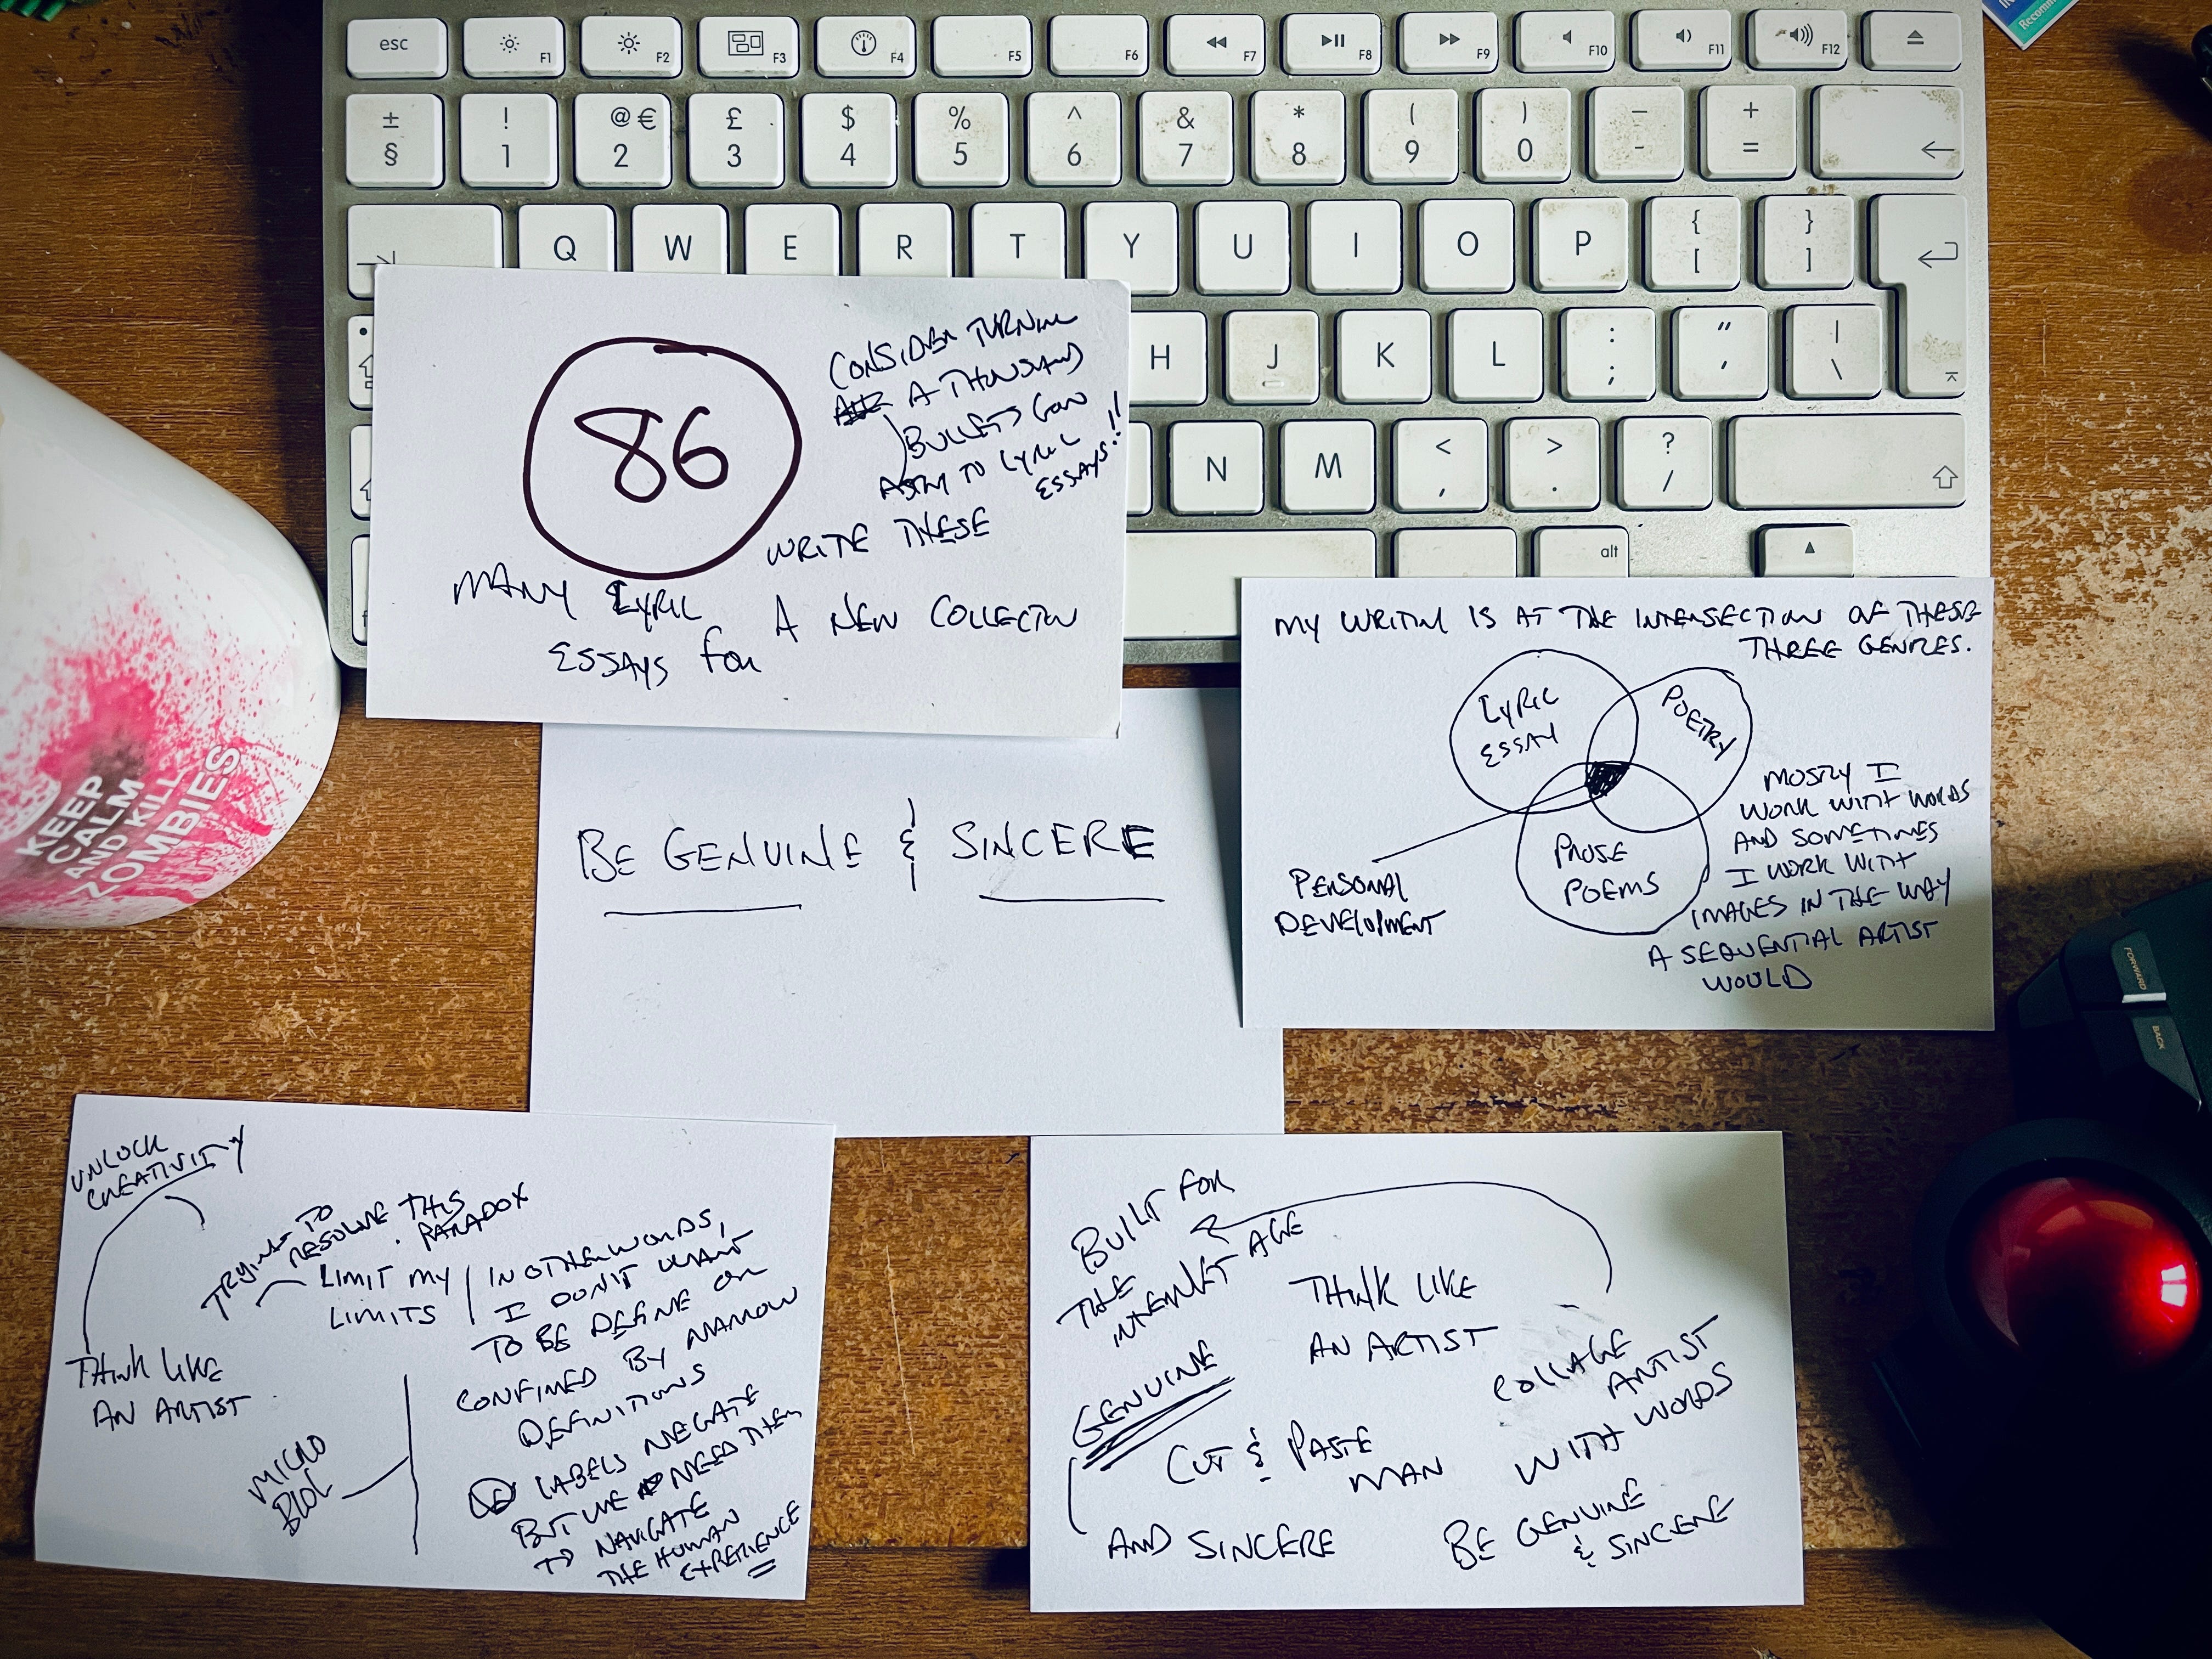 esc
F1
F2
F3
F4
F5
F6
F7
F8
F9
F10
F11
F12
± ! @ € £ $ % ^ & * ( ) _ +
§ 1 2 3 4 5 6 7 8 9 0 - =
Q W E R T Y U I O P { }
[ ]
H J K L : " |
; ' \
N M < > ?
, . /
alt
86
CONSIDER TURNING
A THOUSAND
BULLETS
TO LYRIC
ESSAYS!!
WRITE THESE
MANY LYRIC
ESSAYS FOR
A NEW COLLECTION
MY WRITING IS AT THE INTERSECTION OF THESE
THREE GENRES.
LYRIC
ESSAY
POETRY
PROSE
POEMS
PERSONAL
DEVELOPMENT
MOSTLY I
WORK WITH WORDS
AND SOMETIMES
I WORK WITH
IMAGES IN THE WAY
A SEQUENTIAL ARTIST
WOULD
KEEP
CALM
AND KILL
ZOMBIES
BE GENUINE & SINCERE
FORWARD
BACK
UNLOCK
CREATIVITY
TRYING TO
RESOLVE THIS
PARADOX
LIMIT MY
LIMITS
THINK LIKE
AN ARTIST
MICRO
BLOG
IN OTHER WORDS,
I DON'T WANT
TO BE DEFINE OR
CONFINED BY NARROW
DEFINITIONS
LABELS NEGATE
BUT WE NEED THEM
TO NAVIGATE
THE HUMAN
EXPERIENCE
BUILT FOR
THE
INTERNET AGE
THINK LIKE
AN ARTIST
GENUINE
COLLAGE
ARTIST
WITH WORDS
CUT & PASTE
MAN
AND SINCERE
BE GENUINE
& SINCERE